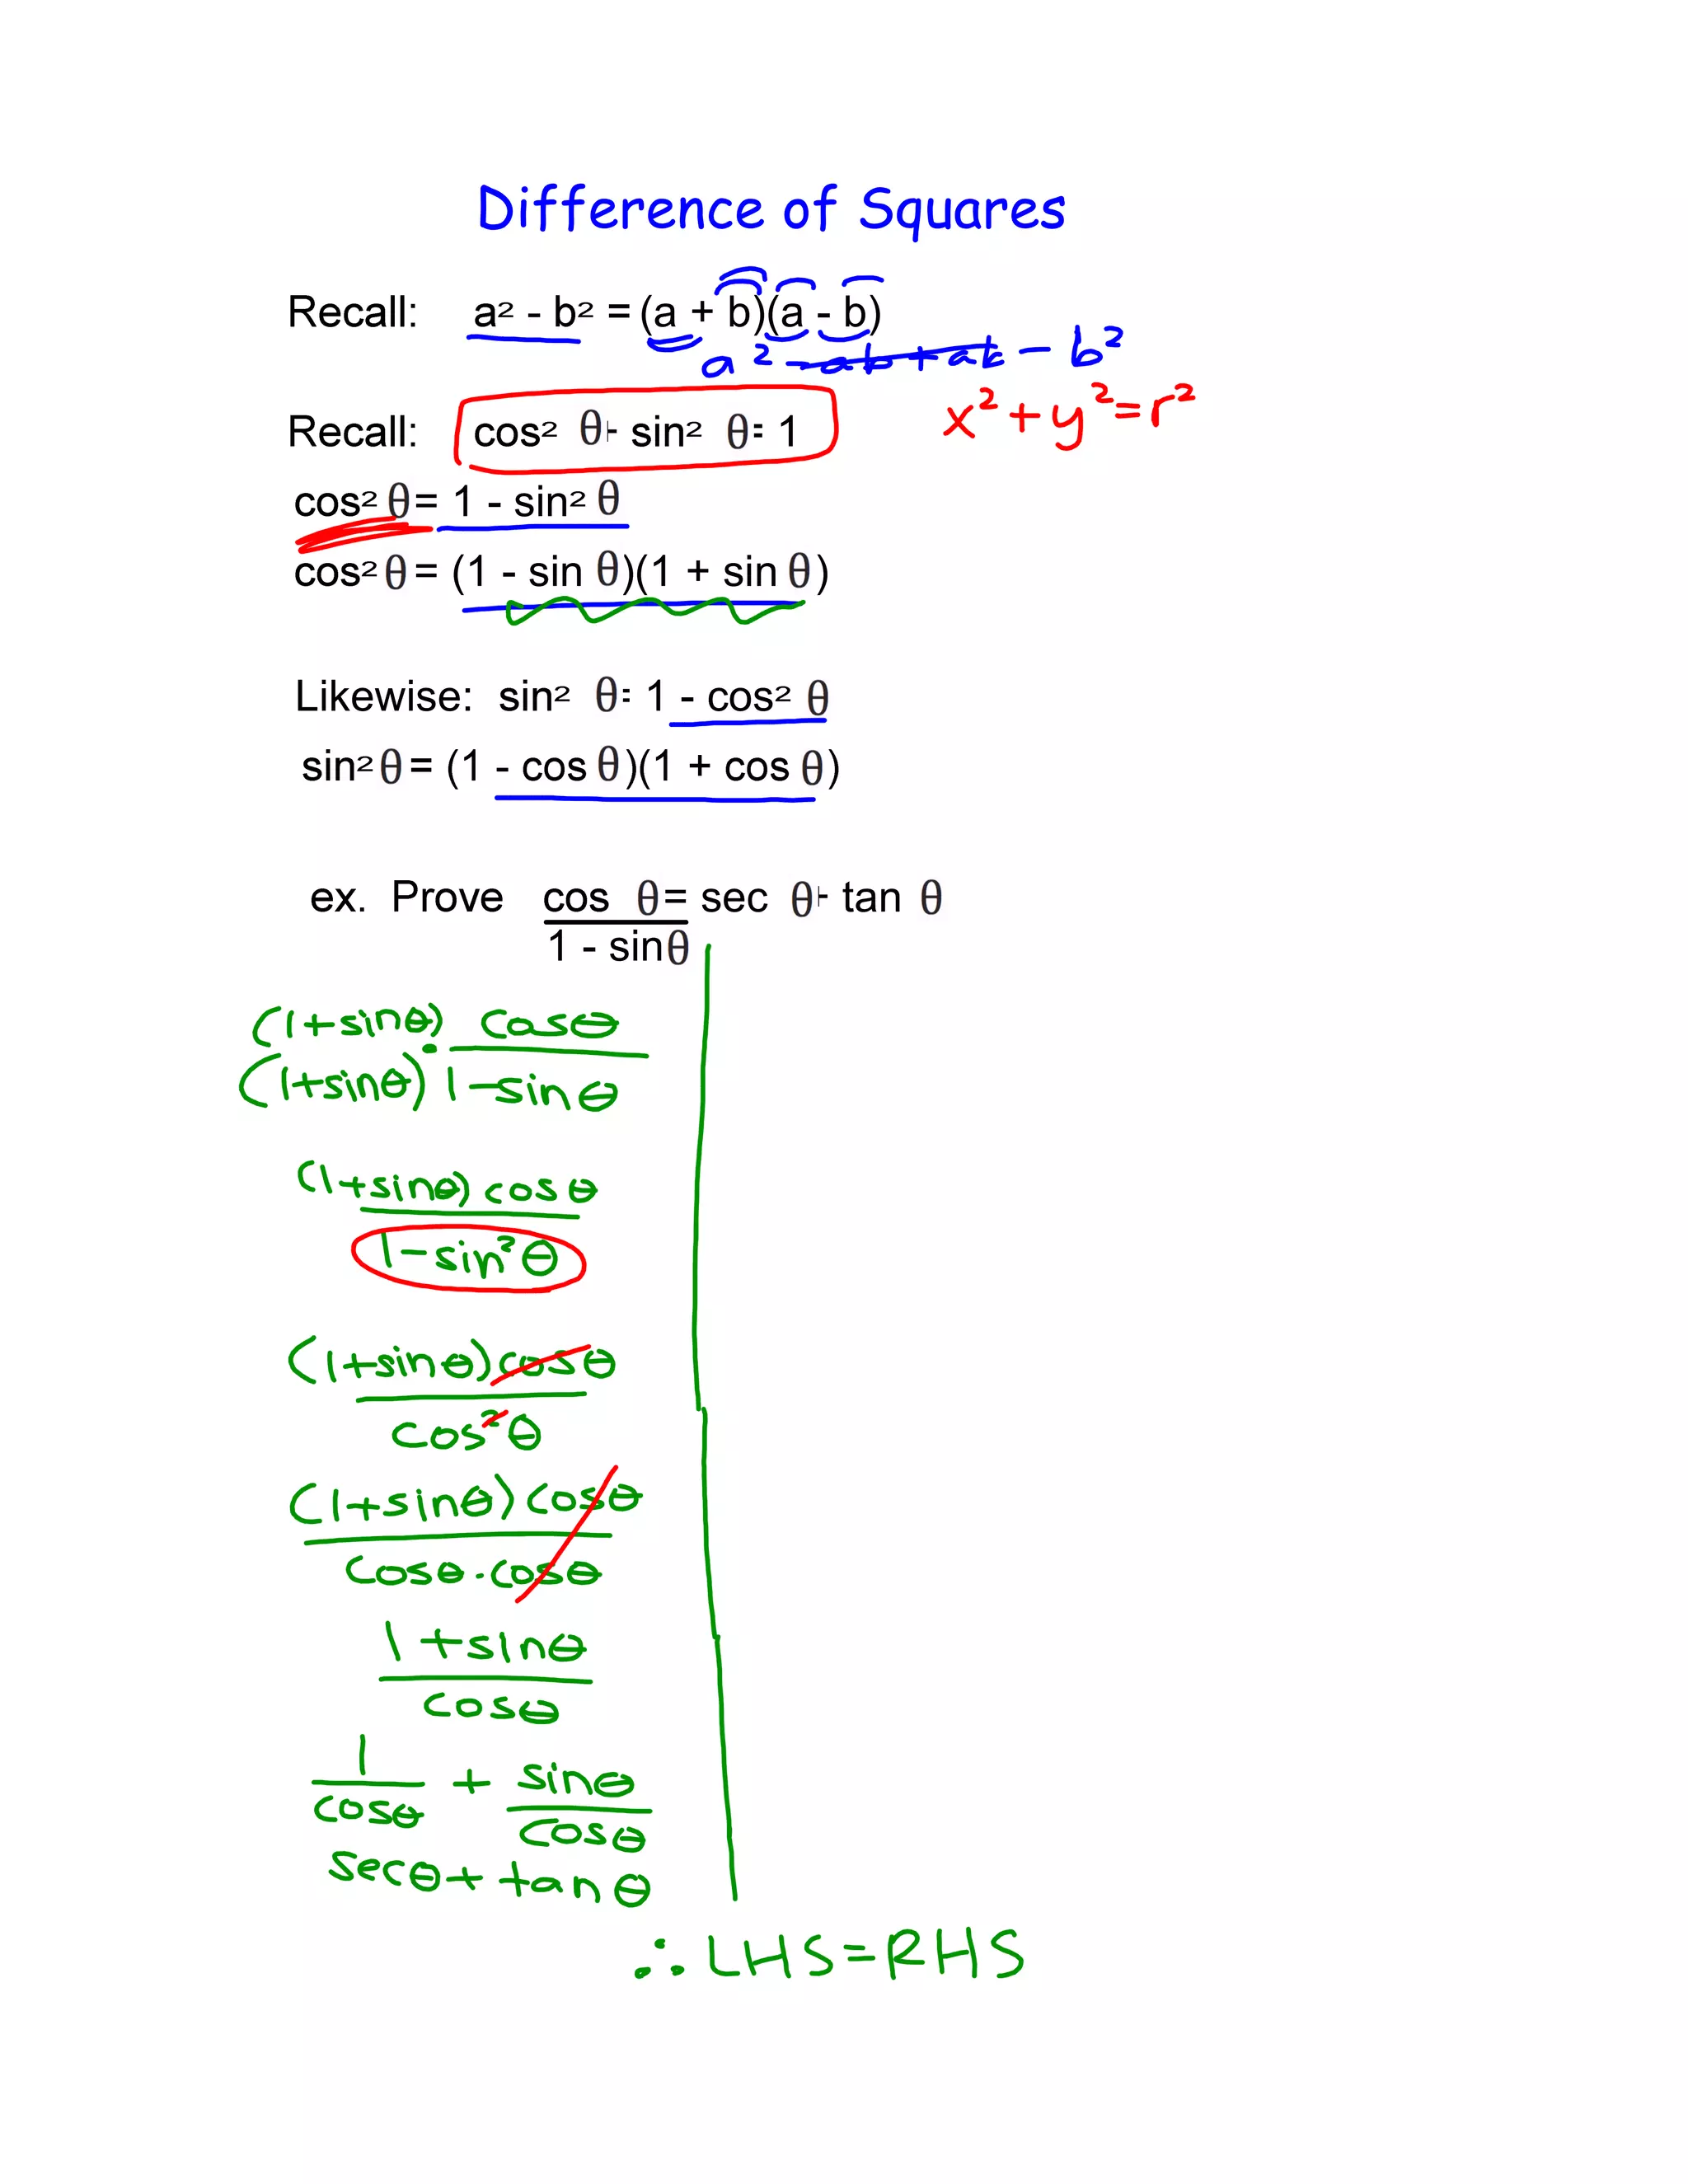 Difference of Squares
Recall: a² - b² = (a + b)(a - b)
a² - ab + ab - b²
Recall: cos² θ + sin² θ = 1
x² + y² = r²
cos² θ = 1 - sin² θ
cos² θ = (1 - sin θ)(1 + sin θ)
Likewise: sin² θ = 1 - cos² θ
sin² θ = (1 - cos θ)(1 + cos θ)
ex. Prove cos θ = sec θ + tan θ
1 - sin θ
(1+sinθ) · cosθ
(1+sinθ) 1-sinθ
(1+sinθ) cosθ
1-sin²θ
(1+sinθ) cosθ
cos²θ
(1+sinθ) cosθ
cosθ · cosθ
1+sinθ
cosθ
1 + sinθ
cosθ cosθ
secθ + tanθ
∴ LHS = RHS